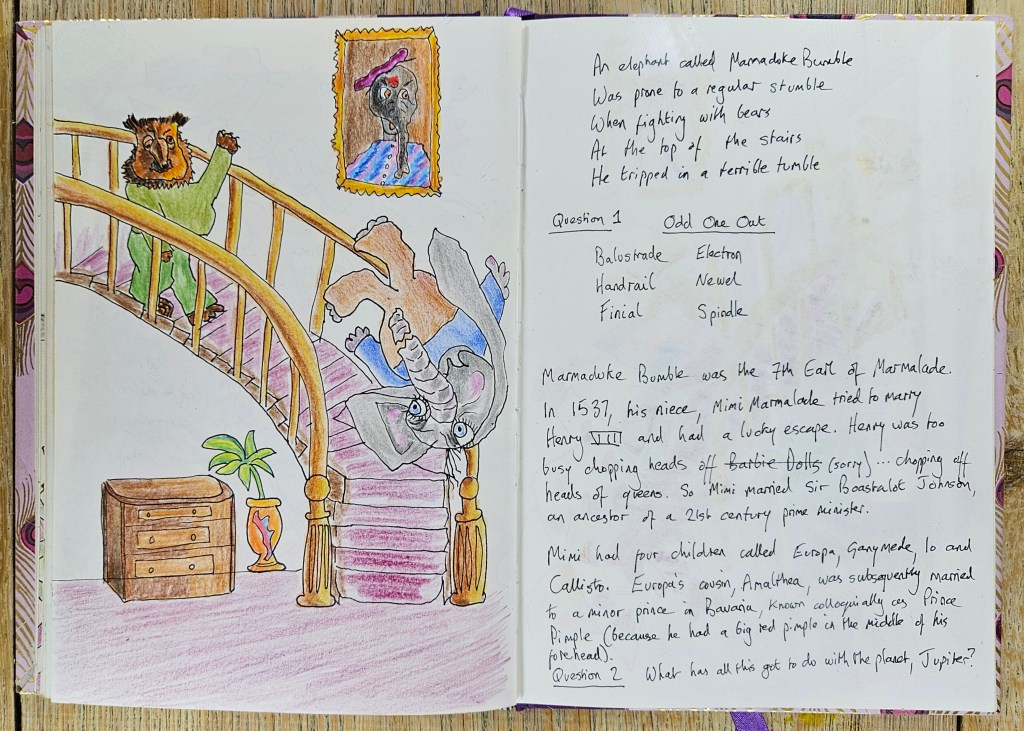 An elephant called Marmaduke Bumble
Was prone to a regular stumble
When fighting with bears
At the top of the stairs
He tripped in a terrible tumble
Question 1 Odd One Out
Balustrade Electron
Handrail Newel
Finial Spindle
Marmaduke Bumble was the 7th Earl of Marmalade.
In 1537, his niece, Mimi Marmalade tried to marry
Henry VIII and had a lucky escape. Henry was too
busy chopping heads off Barbie Dolls (sorry)... chopping off
heads of queens. So Mimi married Sir Boastalot Johnson,
an ancestor of a 21st century prime minister.
Mimi had four children called Europa, Ganymede, Io and
Callisto. Europa's cousin, Amalthea, was subsequently married
to a minor prince in Bavaria, known colloquially as Prince
Pimple (because he had a big red pimple in the middle of his
forehead).
Question 2 What has all this got to do with the planet, Jupiter?